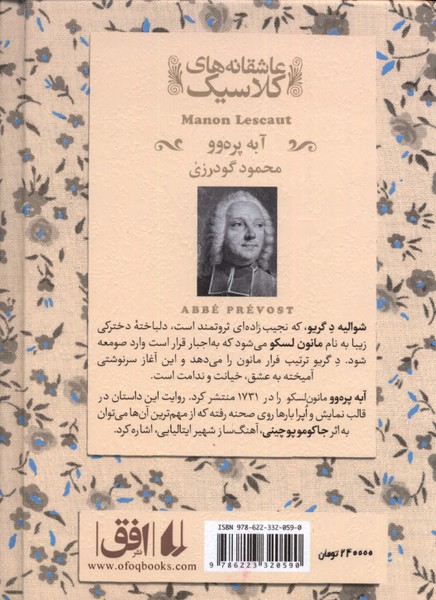 عاشقانه‌های
کلاسیک
Manon Lescaut
آبه پره‌وو
محمود گودرزی
ABBÉ PRÉVOST
شوالیه دِ گریو، که نجیب زاده‌ای ثروتمند است، دلباختهٔ دخترکی
زیبا به نام مانون لسکو می‌شود که به‌اجبار قرار است وارد صومعه
شود. دِ گریو ترتیب فرار مانون را می‌دهد و این آغاز سرنوشتی
آمیخته به عشق، خیانت و ندامت است.
آبه پره‌وو مانون‌لسکو را در ۱۷۳۱ منتشر کرد. روایت این داستان در
قالب نمایش و اپرا بارها روی صحنه رفته که از مهم‌ترین آن‌ها می‌توان
به اثر جاکومو پوچینی، آهنگ‌ساز شهیر ایتالیایی، اشاره کرد.
نشر افق
www.ofoqbooks.com
ISBN 978-622-332-059-0
9 786223 320590
۲۴۰۰۰۰ تومان